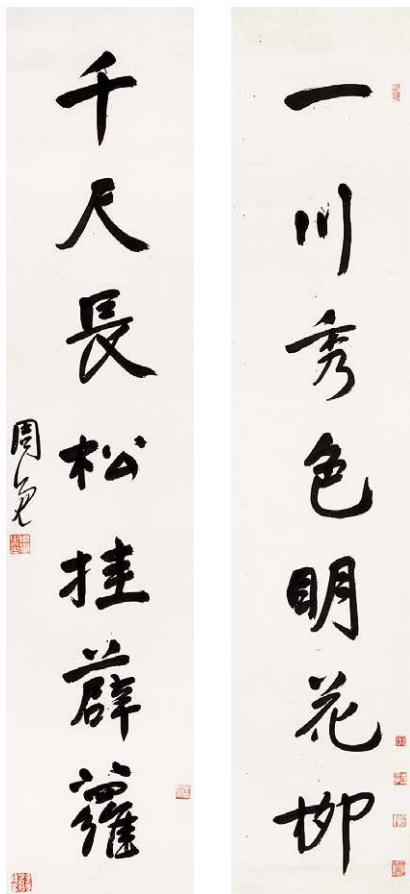 一川秀色明花柳
千尺長松挂薜蘿
周亮